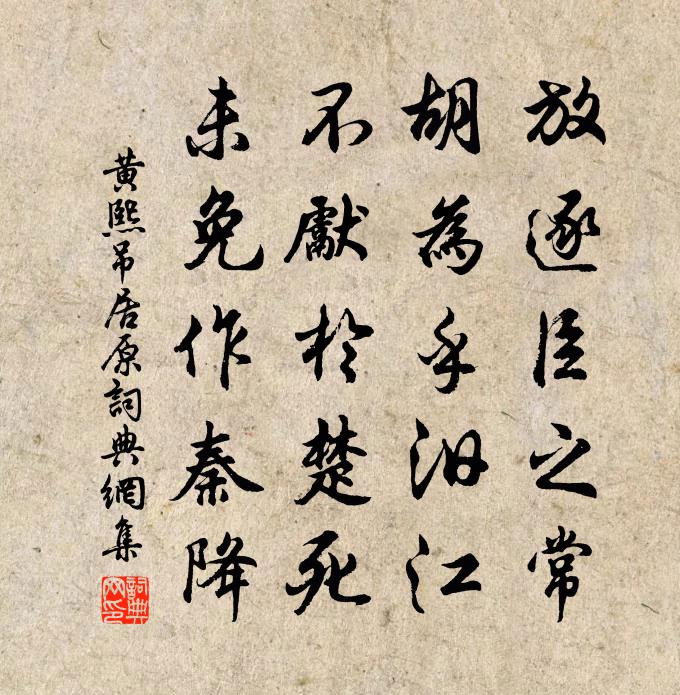 放逐臣之常
胡為乎汨江
不獻於楚死
未免作秦降
黃熙吊屈原詞典網集
詞典
网印